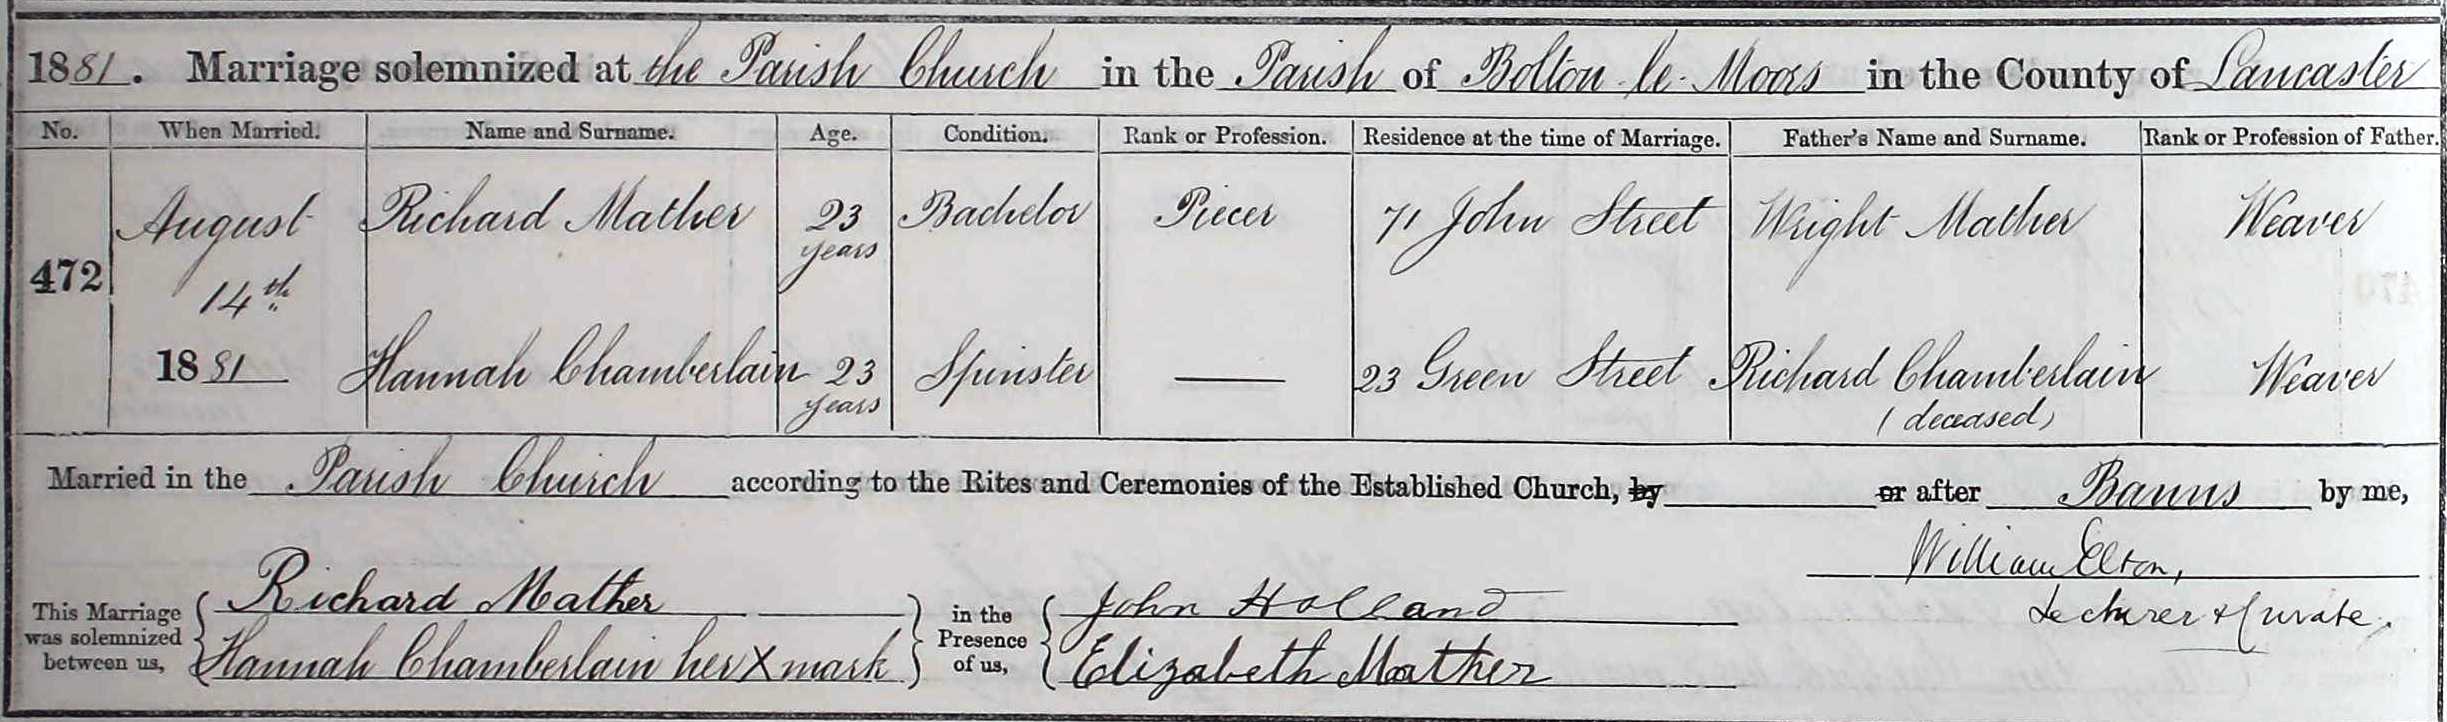 1881. Marriage solemnized at the Parish Church in the Parish of Bolton-le-Moors in the County of Lancaster
No. When Married. Name and Surname. Age. Condition. Rank or Profession. Residence at the time of Marriage. Father's Name and Surname. Rank or Profession of Father.
472 August 14th 1881 Richard Mather 23 years Bachelor Piecer 71 John Street Wright Mather Weaver
Hannah Chamberlain 23 years Spinster — 23 Green Street Richard Chamberlain (deceased) Weaver
Married in the Parish Church according to the Rites and Ceremonies of the Established Church, by or after Banns by me,
William Elton,
Lecturer & Curate.
This Marriage was solemnized between us, Richard Mather
Hannah Chamberlain her X mark
in the Presence of us, John Holland
Elizabeth Mather